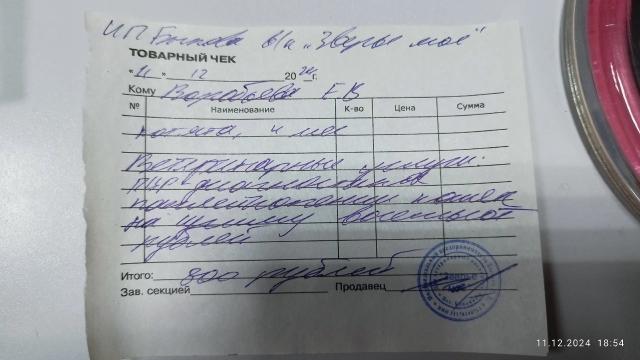 ИП Быкова в/а „Зверье мое"
ТОВАРНЫЙ ЧЕК
"11" 12 2024 г.
Кому Воробьева Е В
№ Наименование К-во Цена Сумма
котята, 4 мес
Ветеринарные услуги:
ПЦР-диагностика
панлейкопении кошек
на сумму восемьсот
рублей
Итого: 800 рублей
Зав. секцией Продавец
11.12.2024 18:54